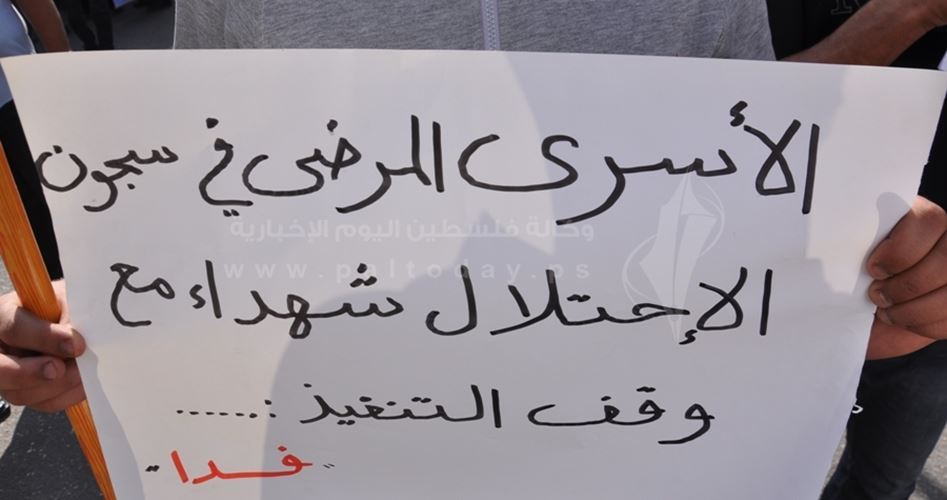 الأسرى المرضى في سجون
وكالة فلسطين اليوم الإخبارية
www.paltoday.ps
الإحتلال شهداء مع
وقف التنفيذ :......
"فدا"